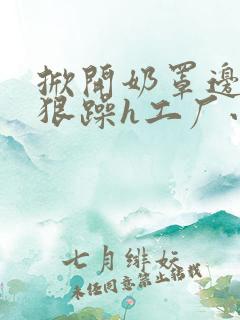 掀开奶罩边
狠躁h工厂、
七月绯妏
未经同意禁止转载